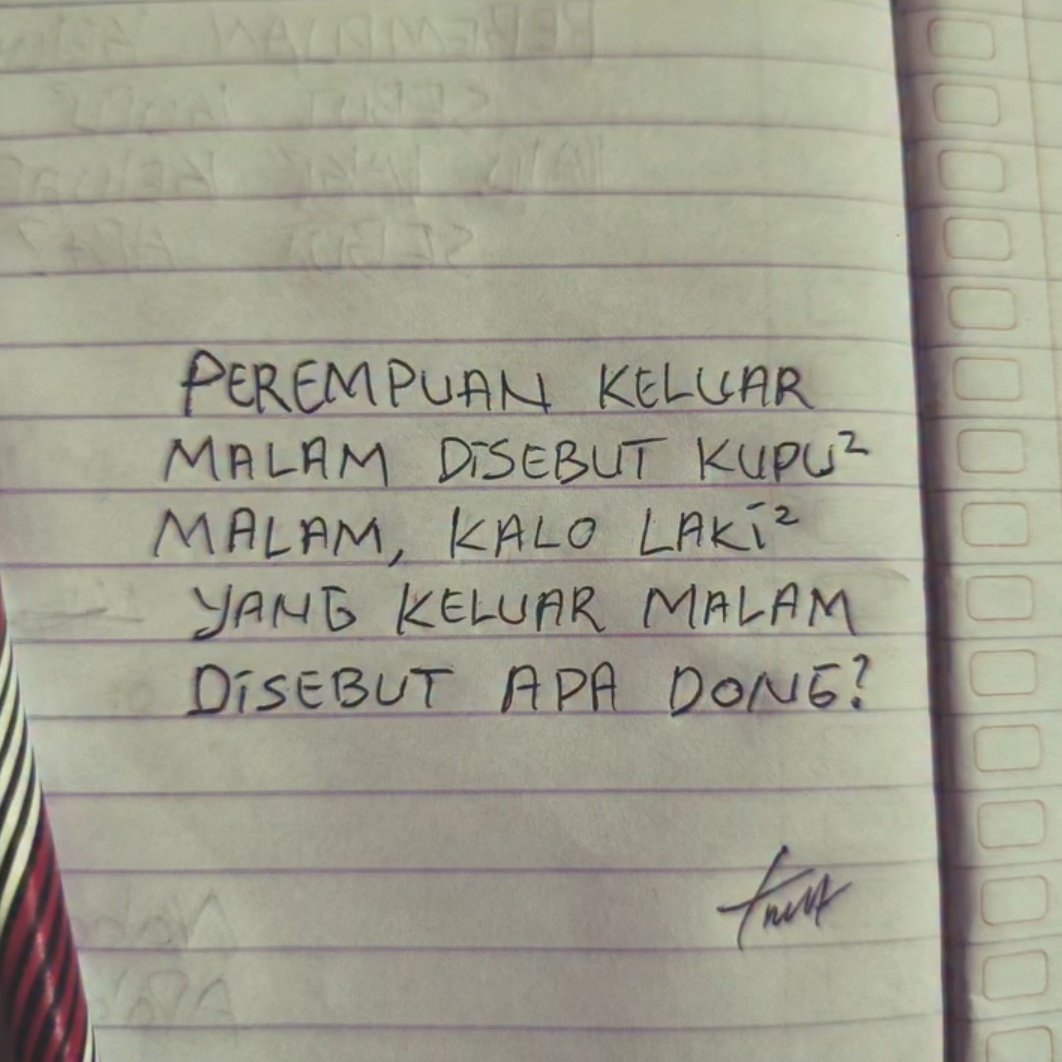 PEREMPUAN KELUAR
MALAM DISEBUT KUPU²
MALAM, KALO LAKI²
YANG KELUAR MALAM
DISEBUT APA DONG?